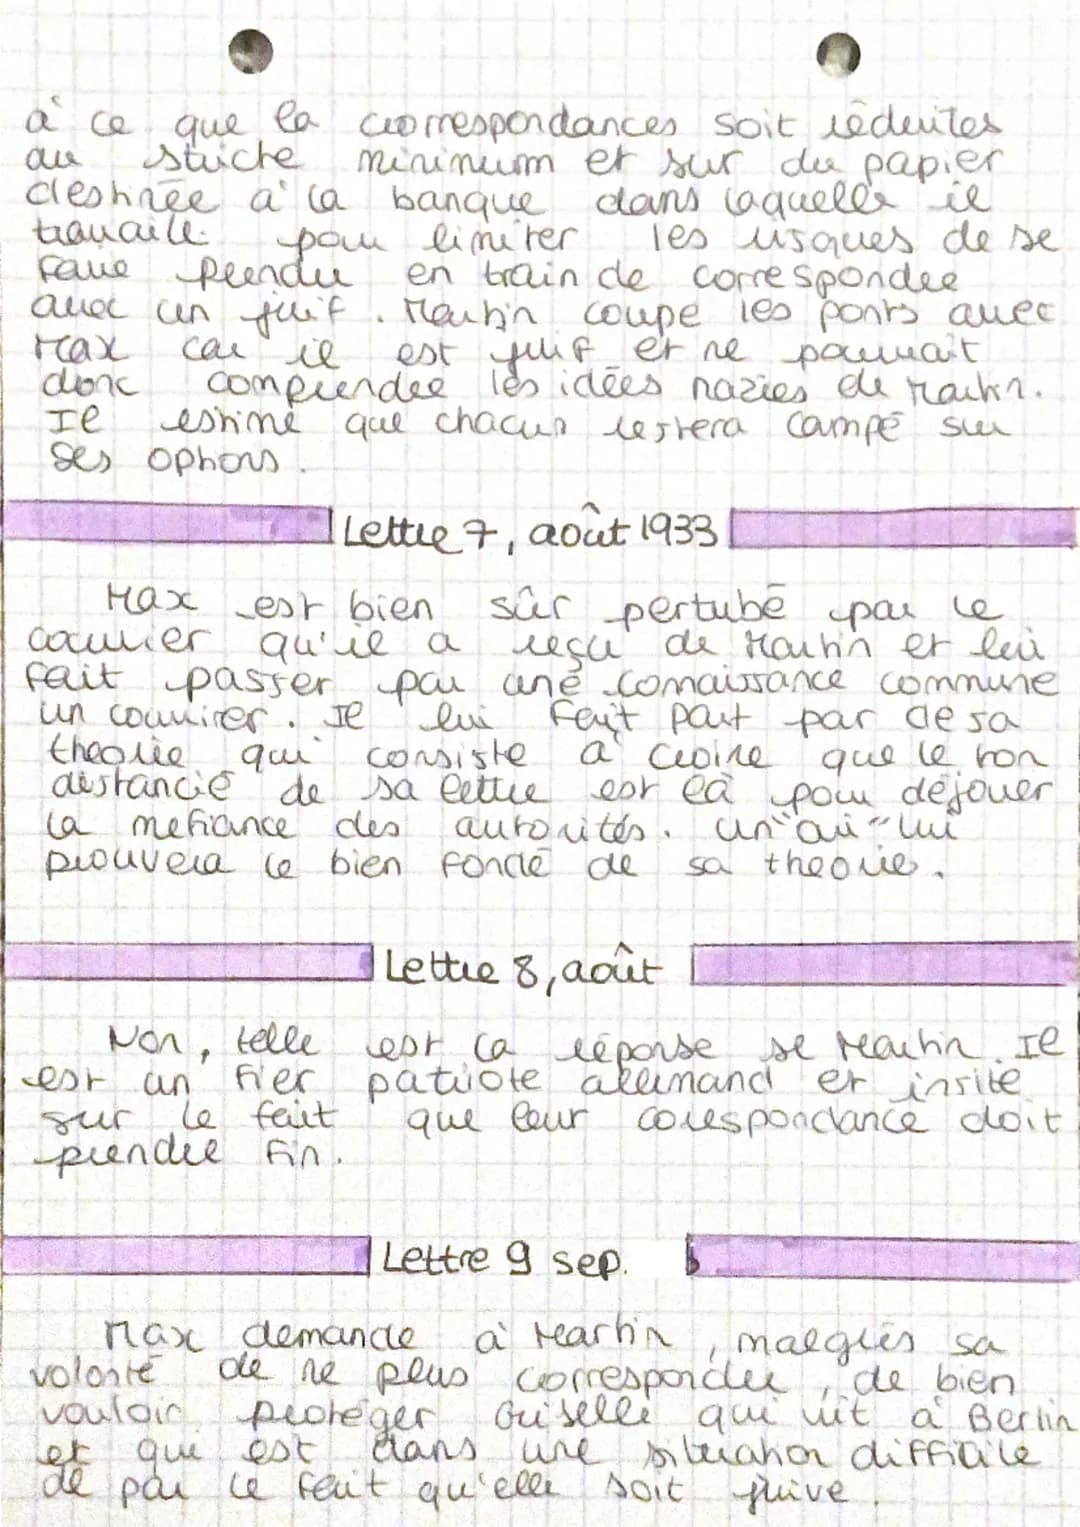 à ce que la correspondances soit réduites
au stricte minimum et sur du papier
destinée à la banque dans laquelle il
travaille pour limiter les risques de se
faire prendre en train de correspondre
avec un juif. Martin coupe les ponts avec
Max car il est juif et ne pourrait
donc comprendre les idées nazies de Martin.
Il estime que chacun restera campé sur
ses opinions.
Lettre 7, août 1933
Max est bien sûr pertubé par le
courrier qu'il a reçu de Martin et lui
fait passer par une connaissance commune
un courrirer. Il lui fait part par de sa
theorie qui consiste à croire que le ton
distancié de sa lettre est là pour déjouer
la mefiance des autorités. un "oui" lui
prouvera le bien fondé de sa theorie.
Lettre 8, août
Non, telle est la réponse de Martin. Il
est un fier patriote allemand et insite
sur le fait que leur corespondance doit
prendre fin.
Lettre 9 sep.
Max demande à Martin, malgrés sa
volonté de ne plus correspondre, de bien
vouloir protéger Griselle qui vit à Berlin
et qui est dans une situation difficile
de par le fait qu'elle soit juive.